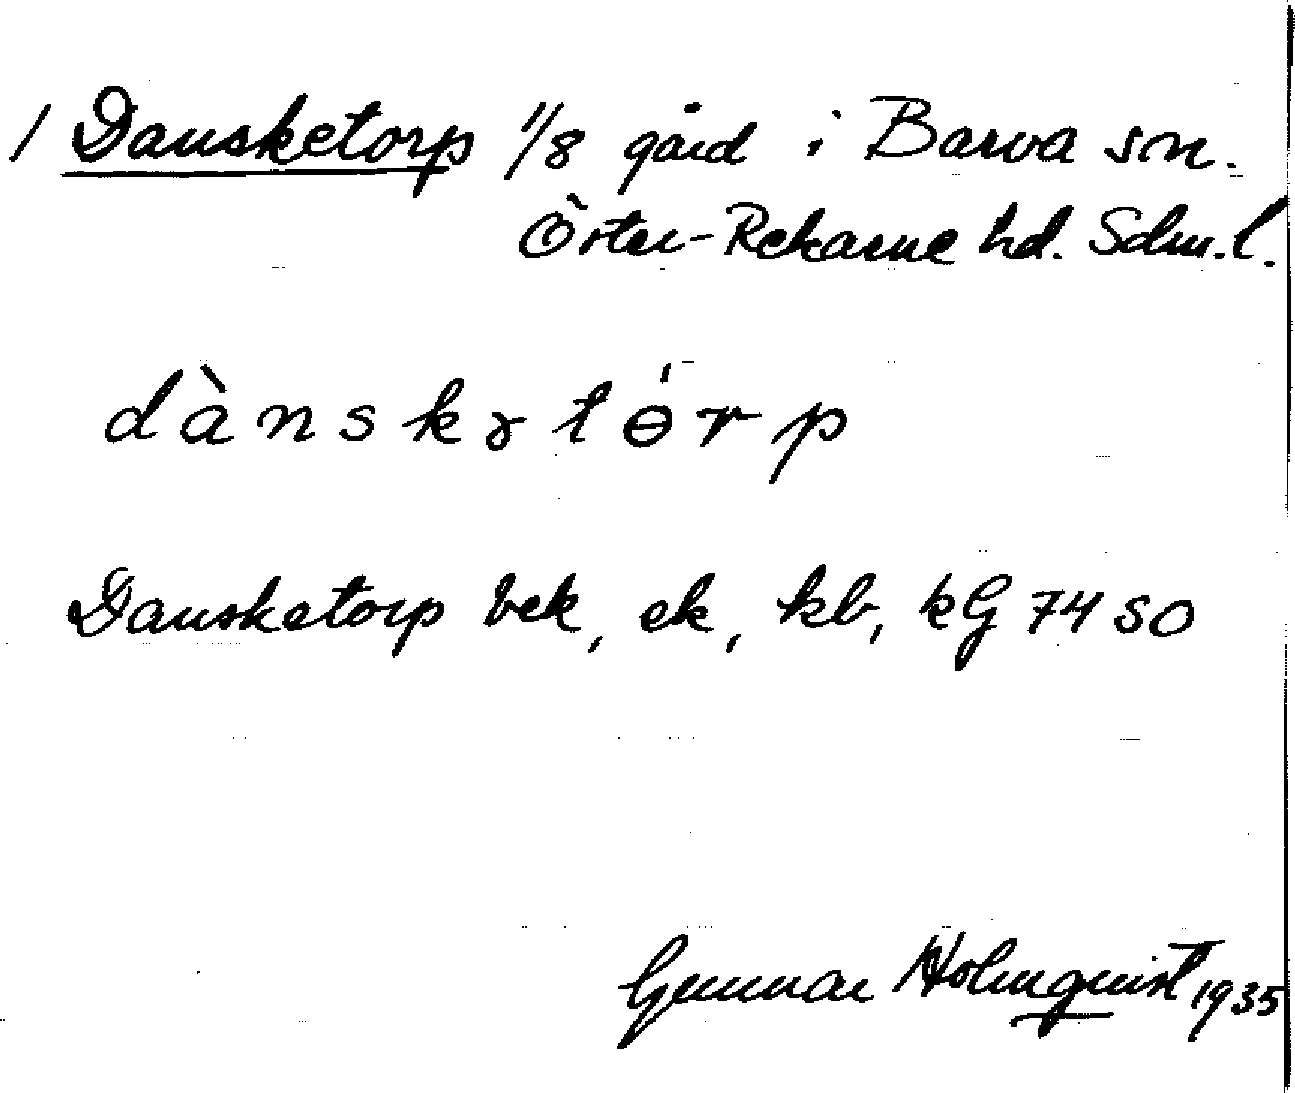 1 Dansketorp 1/8 gård i Barva sn.
Öster-Rekarne hd. Sdm.l.
dànskɤtɵ́rp
Dansketorp bek, ek, kb, kG 74 SO
Gunnar Holmquist 1935